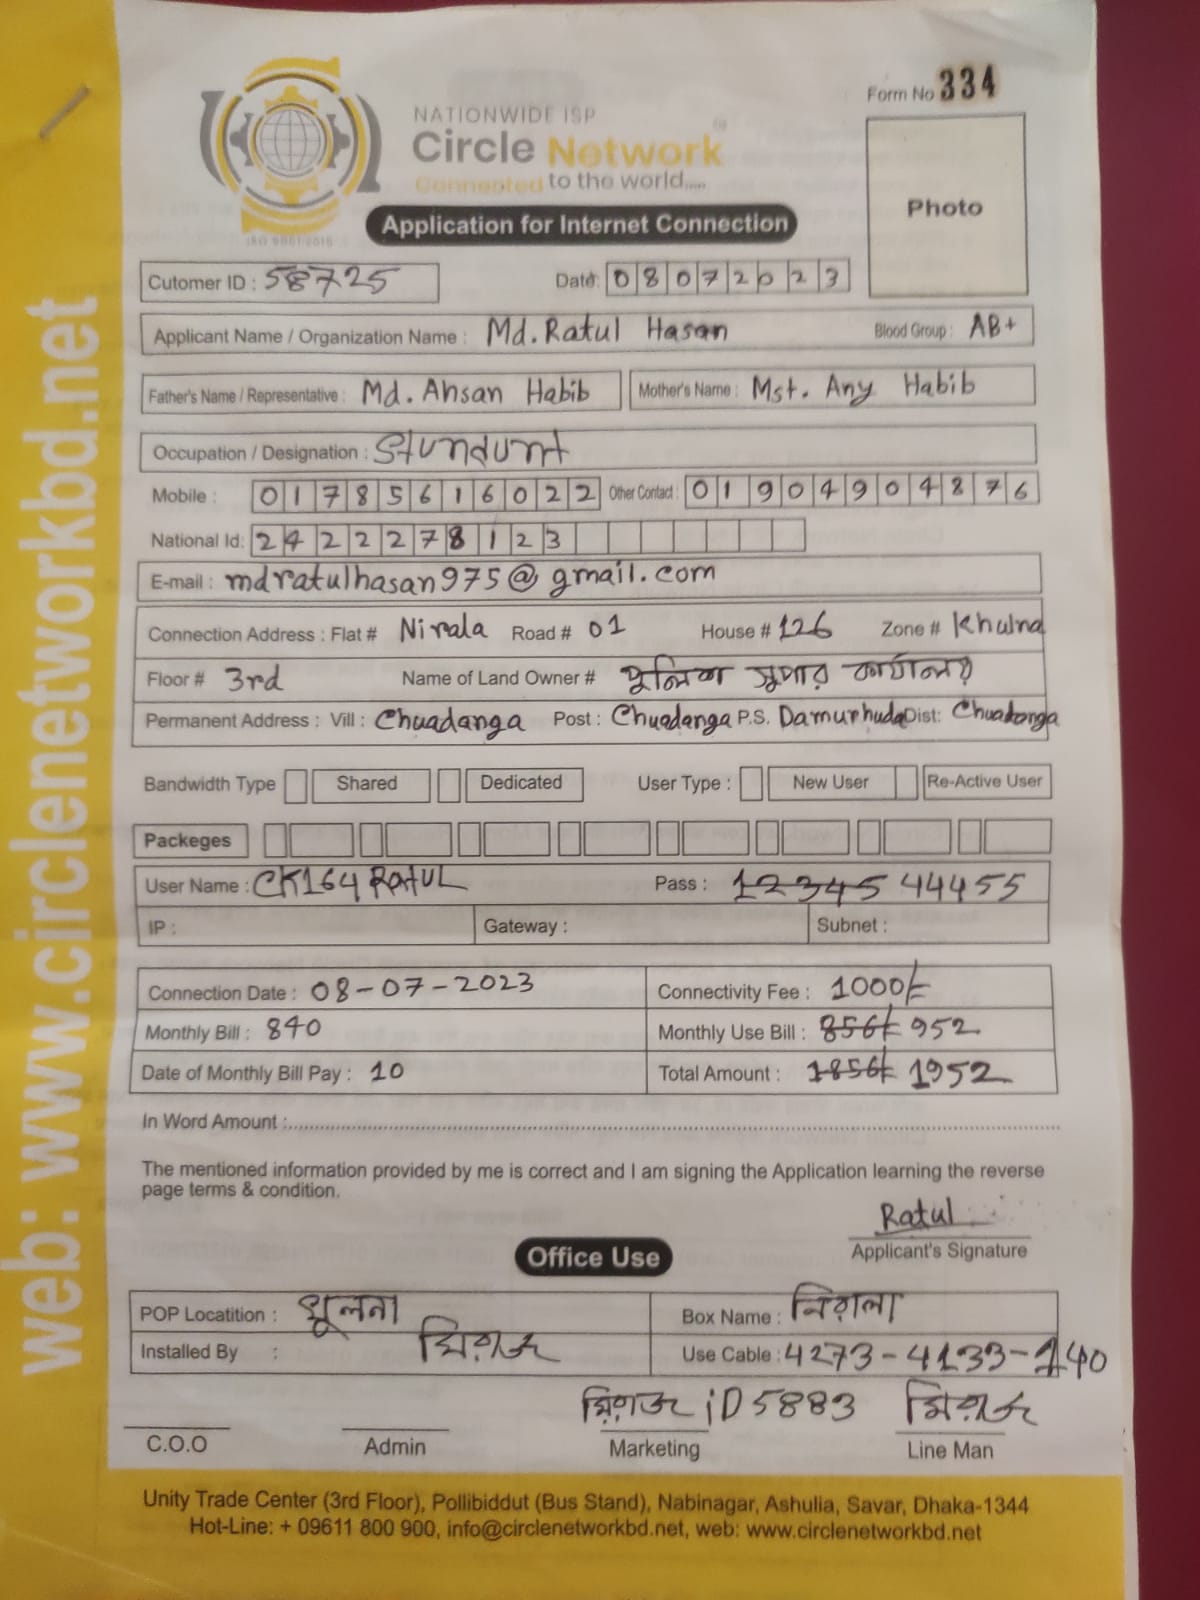 Form No 334
NATIONWIDE ISP
Circle Network
Connected to the world.....
ISO 9001:2015
Photo
Application for Internet Connection
Cutomer ID : 58725 Date: 08072023
Applicant Name / Organization Name : Md. Ratul Hasan Blood Group : AB+
Father's Name / Representative : Md. Ahsan Habib Mother's Name : Mst. Any Habib
Occupation / Designation : Stundunt
Mobile : 01785616022 Other Contact : 01904904876
National Id: 2422278123
E-mail : mdratulhasan975@gmail.com
Connection Address : Flat # Nirala Road # 01 House # 126 Zone # Khulna
Floor # 3rd Name of Land Owner # পুলিশ সুপার কার্যালয়
Permanent Address : Vill : Chuadanga Post : Chuadanga P.S. Damurhuda Dist: Chuadanga
Bandwidth Type Shared Dedicated User Type : New User Re-Active User
Packeges
User Name : CK164RATUL Pass : 12345 44455
IP : Gateway : Subnet :
Connection Date : 08-07-2023 Connectivity Fee : 1000/=
Monthly Bill : 840 Monthly Use Bill : 856/= 952
Date of Monthly Bill Pay : 10 Total Amount : 1856/= 1952
In Word Amount :
The mentioned information provided by me is correct and I am signing the Application learning the reverse
page terms & condition.
Ratul
Applicant's Signature
Office Use
POP Locatition : খুলনা Box Name : নিরালা
Installed By : মিরাজ Use Cable : 4273-4133-140
মিরাজ iD 5883 মিরাজ
C.O.O Admin Marketing Line Man
Unity Trade Center (3rd Floor), Pollibiddut (Bus Stand), Nabinagar, Ashulia, Savar, Dhaka-1344
Hot-Line: + 09611 800 900, info@circlenetworkbd.net, web: www.circlenetworkbd.net
web: www.circlenetworkbd.net